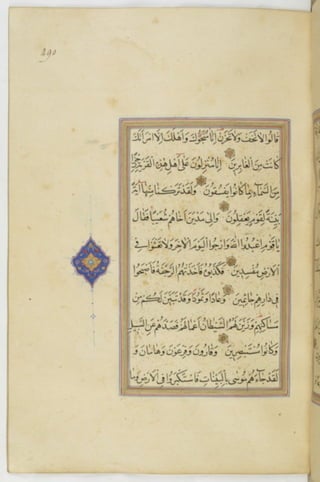 290
قَالُوا لَا تَخَفْ وَلَا تَحْزَنْ اِنَّا مُنَجُّوكَ وَاَهْلَكَ اِلَّا امْرَاَتَكَ
كَانَتْ مِنَ الْغَابِرِينَ اِنَّا مُنْزِلُونَ عَلٰى اَهْلِ هٰذِهِ الْقَرْيَةِ رِجْزًا
مِنَ السَّمَاءِ بِمَا كَانُوا يَفْسُقُونَ وَلَقَدْ تَرَكْنَا مِنْهَا اٰيَةً
بَيِّنَةً لِقَوْمٍ يَعْقِلُونَ وَاِلٰى مَدْيَنَ اَخَاهُمْ شُعَيْبًا فَقَالَ
يَا قَوْمِ اعْبُدُوا اللّٰهَ وَارْجُوا الْيَوْمَ الْاٰخِرَ وَلَا تَعْثَوْا فِي
الْاَرْضِ مُفْسِدِينَ فَكَذَّبُوهُ فَاَخَذَتْهُمُ الرَّجْفَةُ فَاَصْبَحُوا
فِي دَارِهِمْ جَاثِمِينَ وَعَادًا وَثَمُودَ وَقَدْ تَبَيَّنَ لَكُمْ مِنْ
مَسَاكِنِهِمْ وَزَيَّنَ لَهُمُ الشَّيْطَانُ اَعْمَالَهُمْ فَصَدَّهُمْ عَنِ السَّبِيلِ
وَكَانُوا مُسْتَبْصِرِينَ وَقَارُونَ وَفِرْعَوْنَ وَهَامَانَ وَ
لَقَدْ جَاءَهُمْ مُوسٰى بِالْبَيِّنَاتِ فَاسْتَكْبَرُوا فِي الْاَرْضِ وَمَا